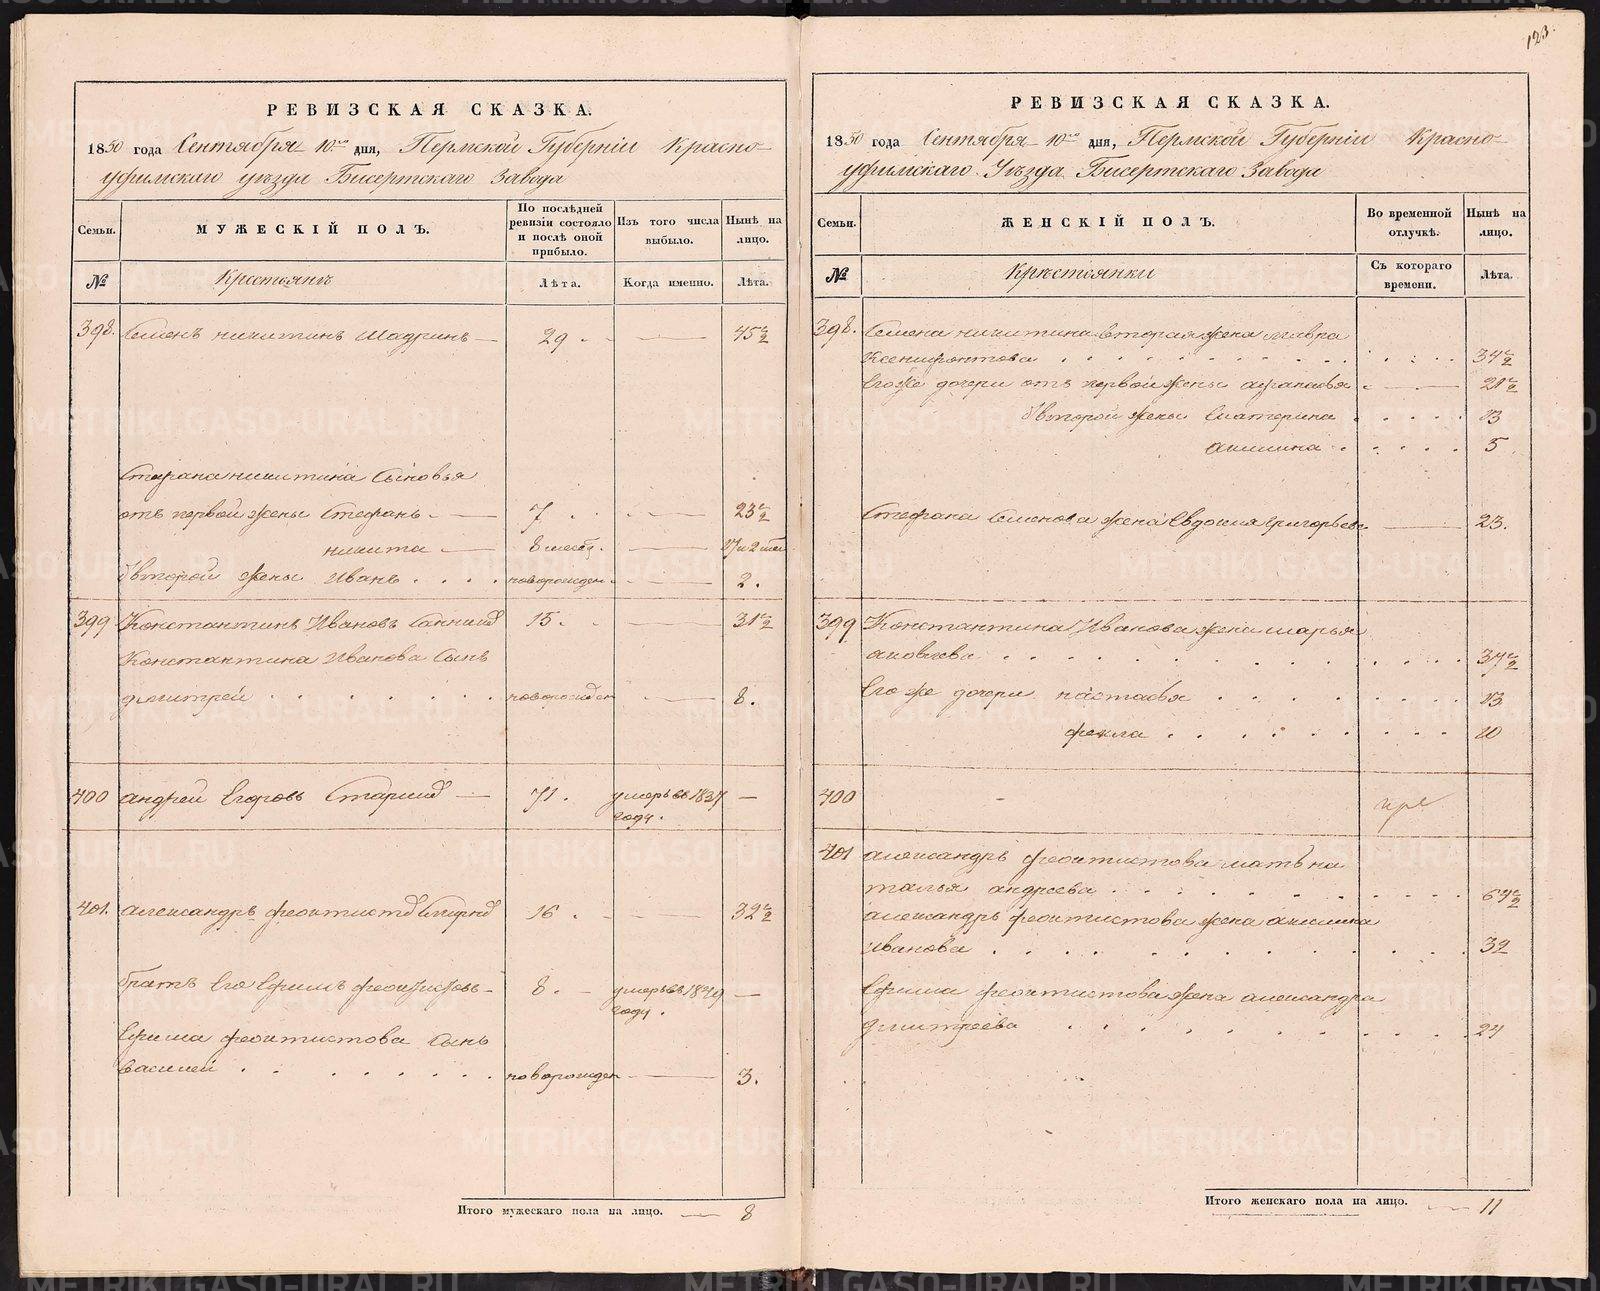 123.
РЕВИЗСКАЯ СКАЗКА.
1850 года Сентября 10го дня, Пермской Губернiи Красно-
уфимскаго уѣзда Бисертскаго Завода
Семьи.
МУЖЕСКІЙ ПОЛЪ.
По послѣдней ревизіи состояло и послѣ оной прибыло.
Изъ того числа выбыло.
Нынѣ на лицо.
№
Крестьянъ
Лѣта.
Когда именно.
Лѣта.
398. Семенъ никитинъ Шадринъ — 29 . — 45½
Стефана никитина Сыновья
отъ первой жены Стефанъ — 7 . . — 23½
никита — 8 месец. —
бвторой жены Иванъ . . . . новорожден. — 2.
399 Константинъ Ивановъ 15. . — 31½
Константина Иванова Сынъ
дмитрей . . . . . . новорожден — 8.
400 андрей Егоровъ — 71. умеръ въ 1837 —
году.
401. александръ феоктистовъ 16 . — 32½
братъ Его Ефимъ феоктистовъ - 8. — умеръ въ 1849 —
году.
Ефима феоктистова Сынъ
василей . . . . . . . новорожден — 3.
Итого мужескаго пола на лицо. — 8
РЕВИЗСКАЯ СКАЗКА.
1850 года Сентября 10го дня, Пермской Губернiи Красно-
уфимскаго Уѣзда Бисертскаго Завода
Семьи.
ЖЕНСКІЙ ПОЛЪ.
Во временной отлучкѣ.
Нынѣ на лицо.
№
Крѣстьянки
Съ котораго времени.
Лѣта.
398. Семена никитина вторая жена мавра
Ксенифонтова . . . . . . . . 34½
Егоже дочери отъ первой жены афанасья . — 21½
бвторой жены Екатерина . . . . . 13
акилина . . . . . 5.
Стефана Семенова жена Евдокия григорьева — 23.
399 Константина Иванова жена марья
яковлева . . . . . . . . 37½
Его же дочери настасья . . . . . . 13
фекла . . . . . . . 10
400 - нѣт
401 александръ феоктистова мать на
талья андреева . . . . . . . 67½
александръ феоктистова жена акилина
Иванова . . . . . . . . 32
Ефима феоктистова жена александра
дмитреева . . . . . . . 24
Итого женскаго пола на лицо. — 11
METRIKI.GASO-URAL.RU